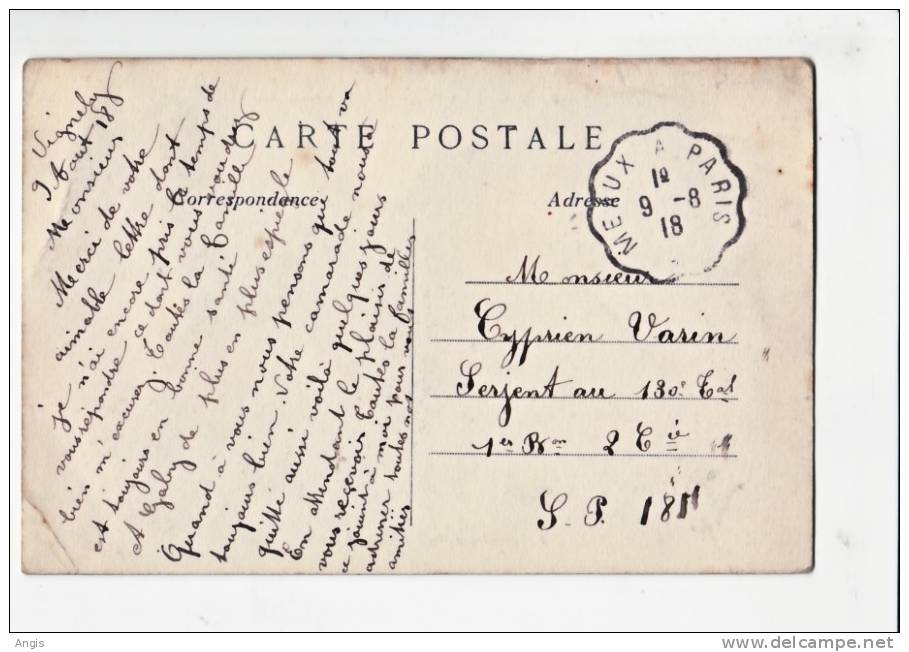 CARTE POSTALE
Correspondance
Adresse
MEUX A PARIS
1º
9 -8
18
Vignely
9 Aout 18
Monsieur
Merci de votre
aimable lettre dont
je n'ai encore pris le temps de
vous repondre ce dont vous voudrez
bien m'excuser. Toutes la famille
est toujours en bonne santé
A Gaby de plus en plus espiegle
Quand à vous nous pensons que tout va
toujours bien. Votre camarade nous a
quitté aussi voilà quelques jours
En attendant le plaisir de
vous recevoir toutes la familles
ce joint à moi pour vous
adresser toutes nos
amitiés
Monsieur
Cyprien Varin
Serjent au 130e
1er Bon 2 Cie
S. P. 181
Angis
www.delcampe.net